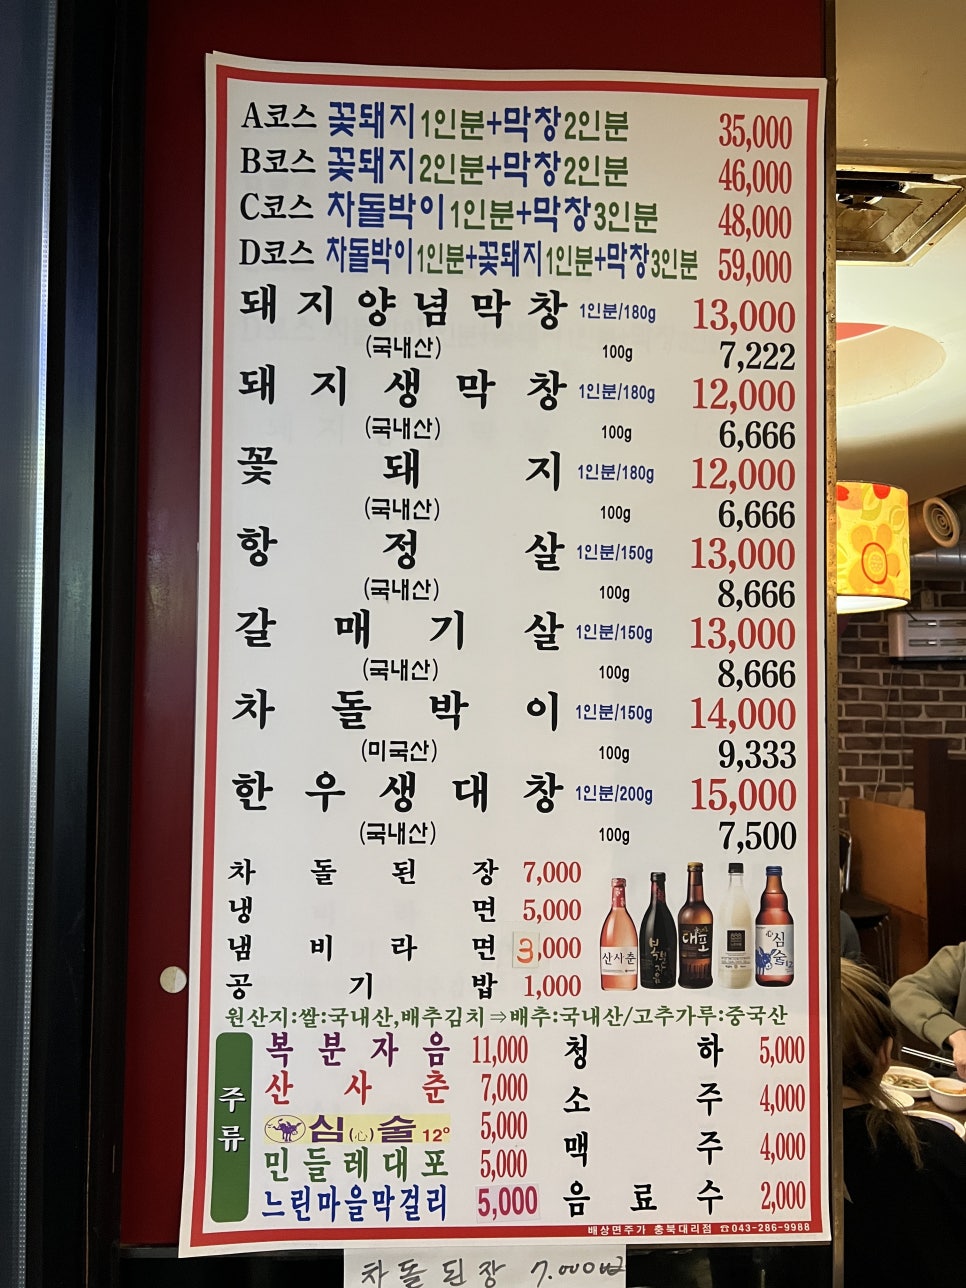 A코스 꽃돼지1인분+막창2인분 35,000
B코스 꽃돼지2인분+막창2인분 46,000
C코스 차돌박이1인분+막창3인분 48,000
D코스 차돌박이1인분+꽃돼지1인분+막창3인분 59,000
돼지양념막창 1인분/180g 13,000
(국내산) 100g 7,222
돼지생막창 1인분/180g 12,000
(국내산) 100g 6,666
꽃돼지 1인분/180g 12,000
(국내산) 100g 6,666
항정살 1인분/150g 13,000
(국내산) 100g 8,666
갈매기살 1인분/150g 13,000
(국내산) 100g 8,666
차돌박이 1인분/150g 14,000
(미국산) 100g 9,333
한우생대창 1인분/200g 15,000
(국내산) 100g 7,500
차돌된장 7,000
냉면 5,000
냄비라면 3,000
공기밥 1,000
산사춘
대포
심술
원산지:쌀:국내산,배추김치⇒배추:국내산/고추가루:중국산
주류
복분자음 11,000
산사춘 7,000
심(心)술 12° 5,000
민들레대포 5,000
느린마을막걸리 5,000
청하 5,000
소주 4,000
맥주 4,000
음료수 2,000
배상면주가 충북대리점 ☎043-286-9988
차돌된장 7.000